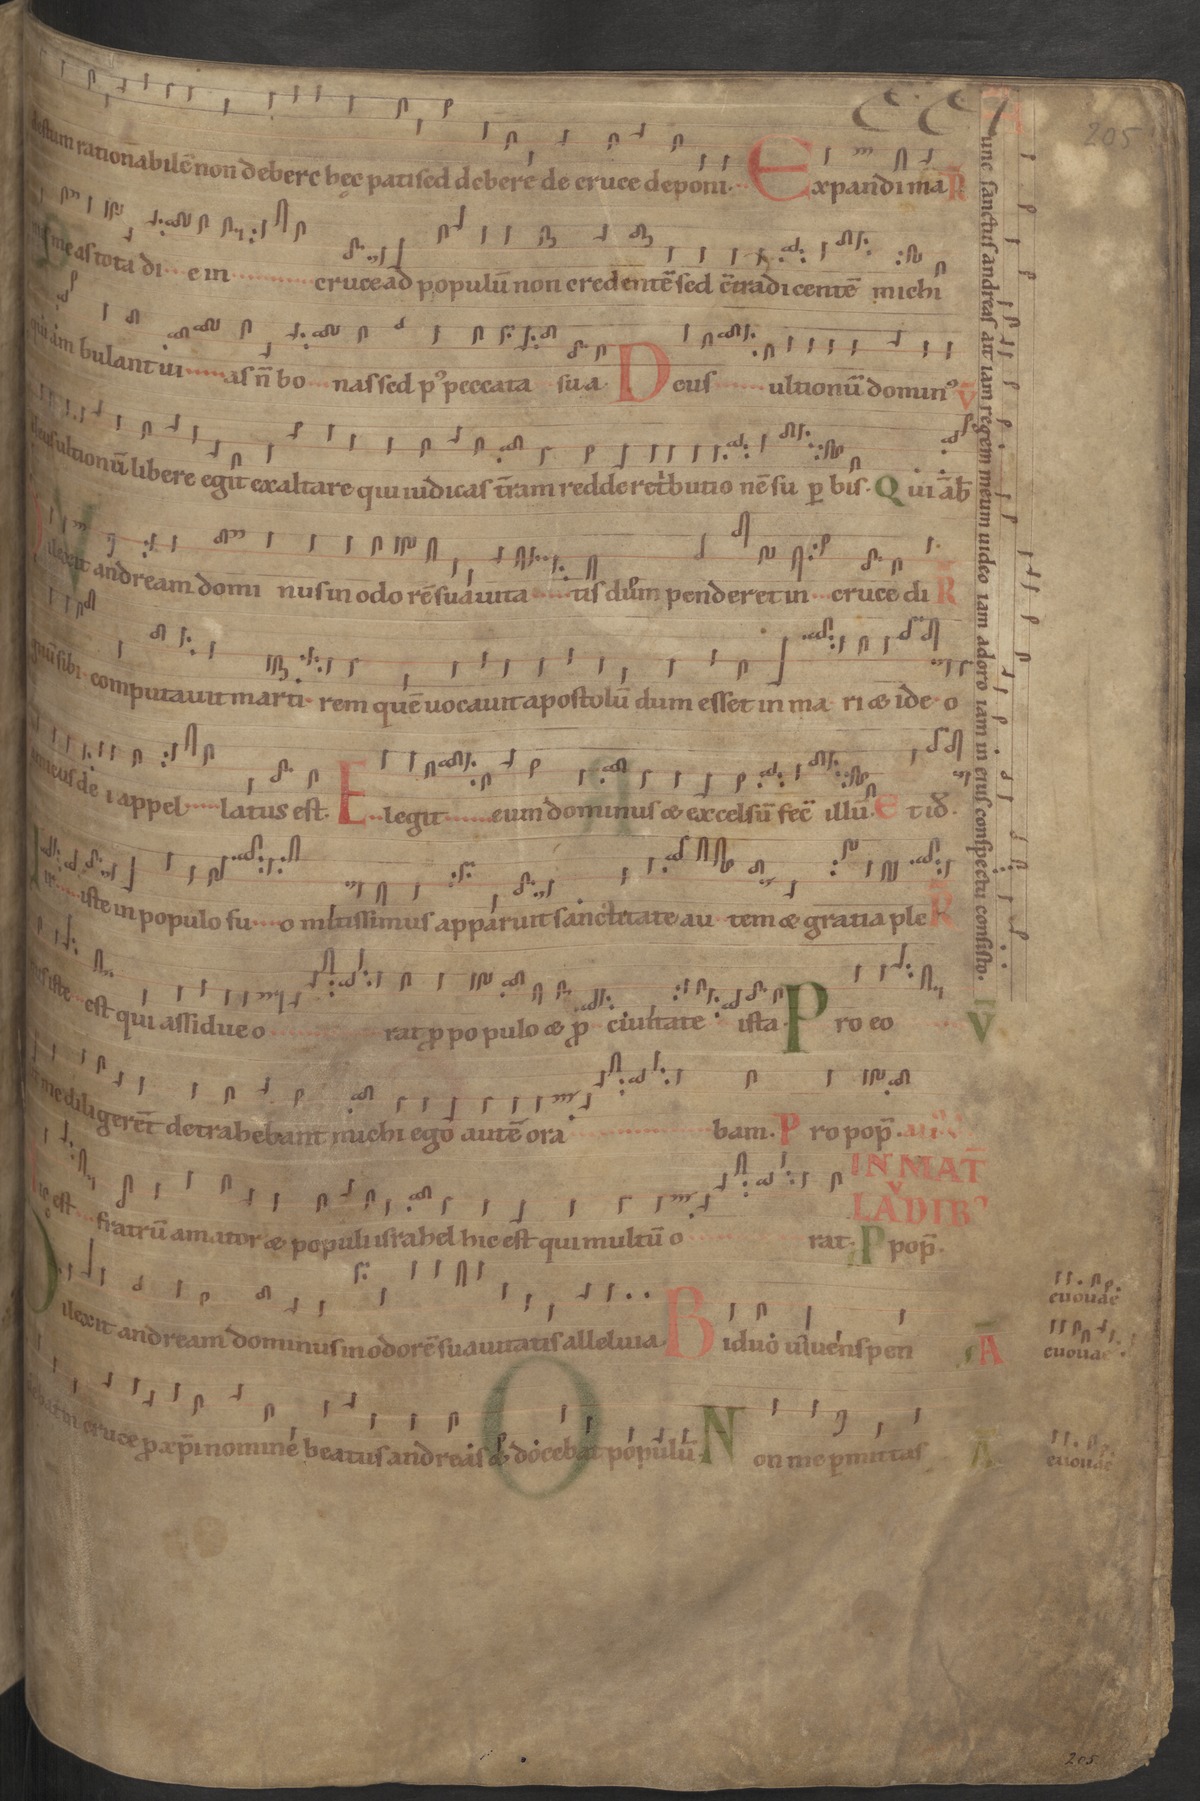 205
destum rationabilē non debere hec pati sed debere de cruce deponi. Expandi ma R
nus meas tota di em cruce ad populū non credentē sed ctradicentē michi
qui ambulant ui as n̄ bo nas sed p᾿ peccata sua Deus ultionū domin᾿ V
deus ultionū libere egit exaltare qui iudicas tr̄am redde retbutionē su p bis. Qui āb
Dilexit andream domi nus in odorē suauita tis dum penderet in cruce di R
gnū sibi computauit marti rem quē uocauit apostolū dum esset in ma ri & ideo
amicus dei appel latus est. Elegit eum dominus & excelsū fec̄ illū. et iđ.
Vir iste in populo suo mitissimus apparuit sanctitate autem & gratia ple R
nus iste est qui assidue o rat p populo & p ciuitate ista Pro eo V
ut me diligerēt detrahebant michi ego autē ora bam. P ro pop̄.
IN MAT̄
LAVDIB᾿
Hic est fratrū amator & populi israhel hic est qui multū o rat. P pop̄.
euouae
Dilexit andream dominus in odorē suauitatis alleluia Biduo uiuens pen A
euouae
debat in cruce p xpī nomine beatus andreas & docebat populū Non me pmittas A
euouae
Tunc sanctus andreas ait iam regem meum uideo iam adoro iam in eius conspectu consisto.
205